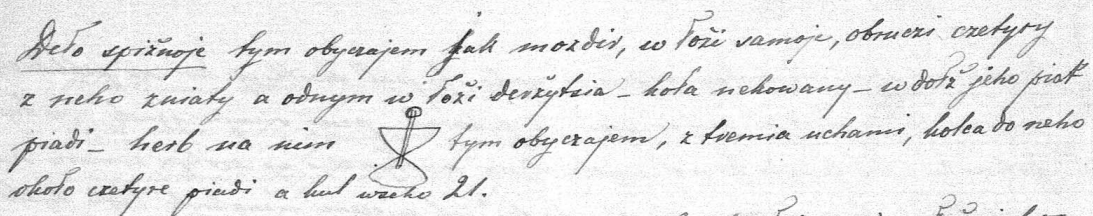 Deło spižnoje tym obyczajem jak mozdir, w łoži samoje, obruczi czetyry
z neho zniaty a odnym w łoži deržytsia – koła nekowany – w dołž jeho piat́
piadi – herb na nim tym obyczajem, z tremia uchami, kolca do neho
około czetyre piadi a kul wseho 21.